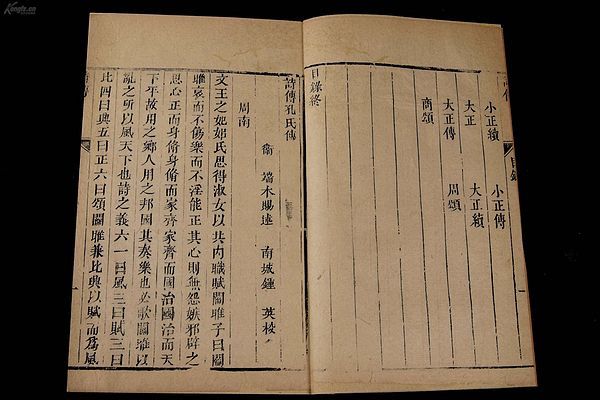 小正續 小正傳
大正 大正續
大正傳 周頌
商頌
目錄終
詩傳孔氏傳
衞 端木賜述 南城鍾 英校
周南
文王之妃姒氏思得淑女以共內職賦關雎子曰關
雎哀而不傷樂而不淫能正其心則無怨嫉邪辟之
思心正而身脩身脩而家齊家齊而國治國治而天
下平故用之鄉人用之邦國其奏樂也必歌關雎以
亂之所以風天下也詩之義六一曰風二曰賦三曰
比四曰興五曰正六曰頌關雎兼比興以賦而爲風
Kongfz.cn